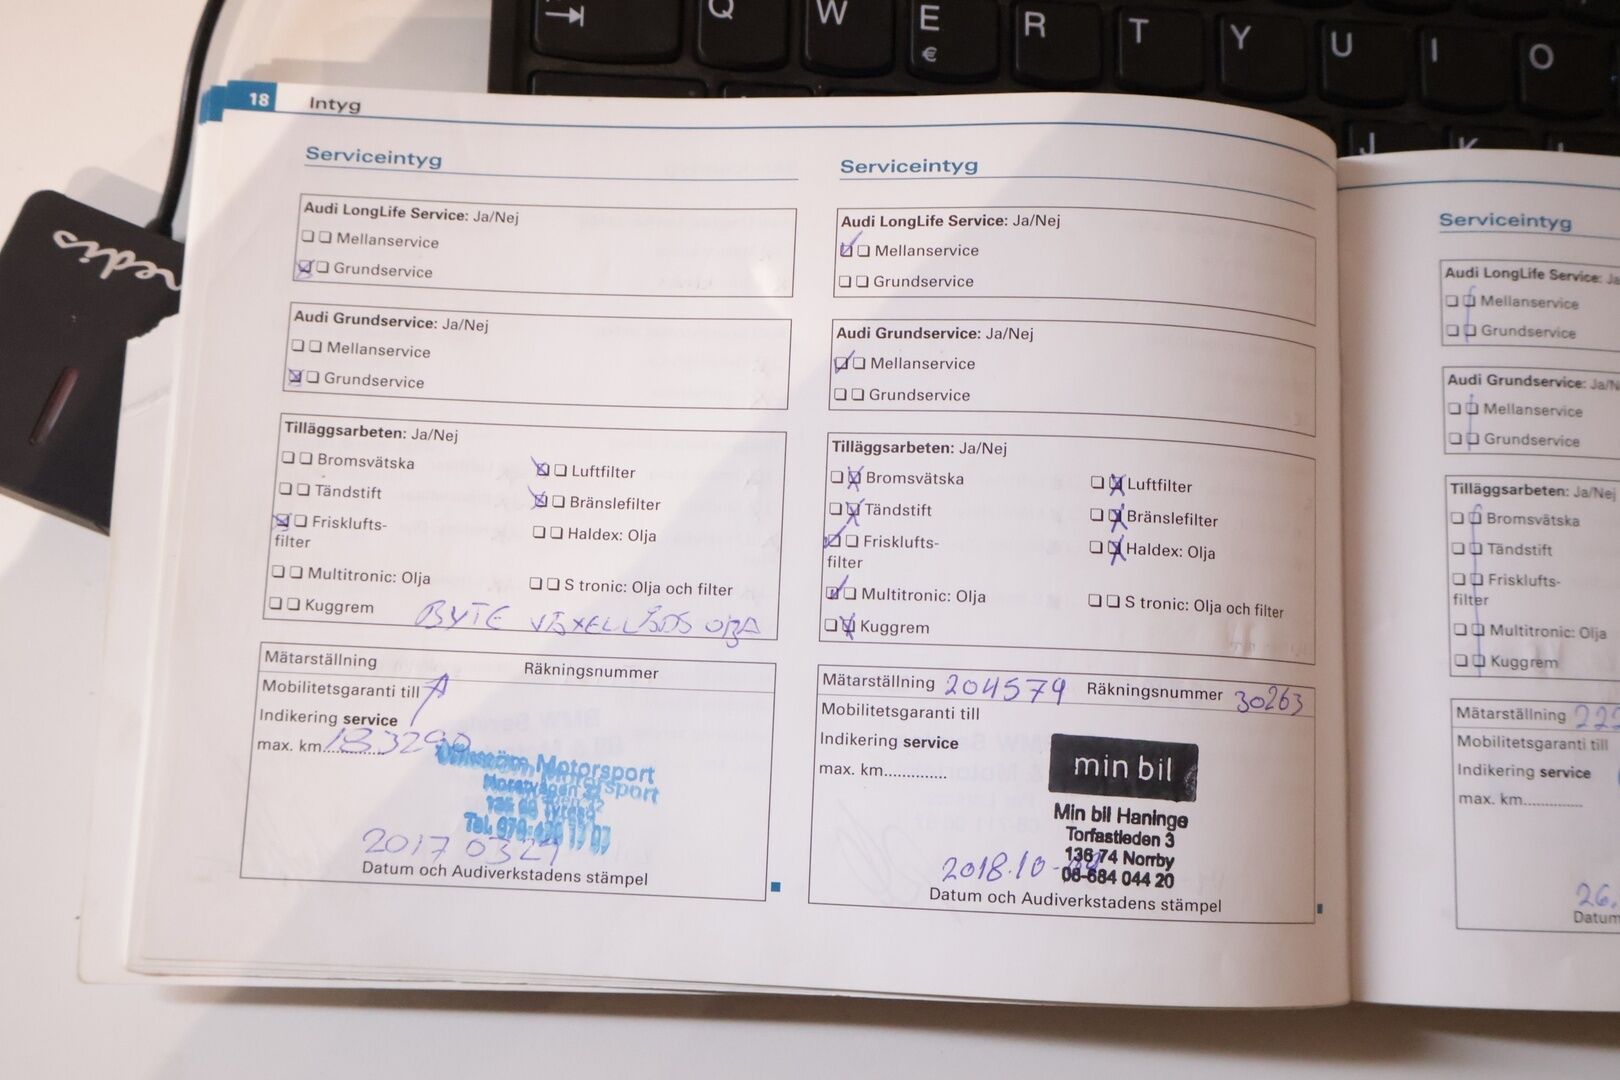 Q W E R T Y U I O
€
J K L
redis
18 Intyg
Serviceintyg
Audi LongLife Service: Ja/Nej
Mellanservice
Grundservice
Audi Grundservice: Ja/Nej
Mellanservice
Grundservice
Tilläggsarbeten: Ja/Nej
Bromsvätska
Luftfilter
Tändstift
Bränslefilter
Frisklufts-
filter
Haldex: Olja
Multitronic: Olja
S tronic: Olja och filter
Kuggrem
BYTE VÄXELLÅDS OLJA
Mätarställning
Räkningsnummer
Mobilitetsgaranti till
Indikering service
max. km............ 183290
Motorsport
Tel.
2017 03
Datum och Audiverkstadens stämpel
Serviceintyg
Audi LongLife Service: Ja/Nej
Mellanservice
Grundservice
Audi Grundservice: Ja/Nej
Mellanservice
Grundservice
Tilläggsarbeten: Ja/Nej
Bromsvätska
Luftfilter
Tändstift
Bränslefilter
Frisklufts-
filter
Haldex: Olja
Multitronic: Olja
S tronic: Olja och filter
Kuggrem
Mätarställning 204579 Räkningsnummer 30263
Mobilitetsgaranti till
Indikering service
max. km.............
min bil
Min bil Haninge
Torfastleden 3
136 74 Norrby
08-684 044 20
2018.10-
Datum och Audiverkstadens stämpel
Serviceintyg
Audi LongLife Service: Ja
Mellanservice
Grundservice
Audi Grundservice: Ja/N
Mellanservice
Grundservice
Tilläggsarbeten: Ja/Nej
Bromsvätska
Tändstift
Frisklufts-
filter
Multitronic: Olja
Kuggrem
Mätarställning 222
Mobilitetsgaranti till
Indikering service
max. km.............
26.
Datum